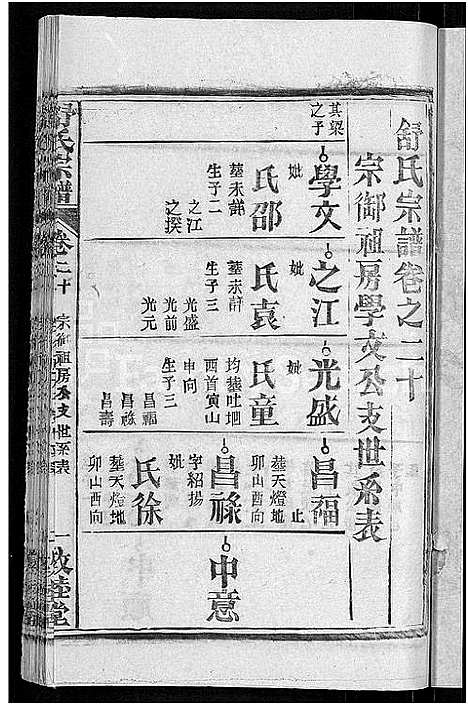 舒氏宗譜卷之二十
宗御祖房學文公支世系表
其梁之子
學文
妣
氏邵
墓未詳
生子二
之江
之揆
之江
妣
氏袁
墓未詳
生子三
光盛
光前
光元
光盛
妣
氏童
均墓吐坦
西首寅山
申向
生子三
昌福
昌祿
昌壽
昌福
止
墓天燈地
卯山酉向
昌祿
字紹揚
妣
氏徐
墓天燈地
卯山酉向
中意
舒氏宗譜
卷二十
宗御祖房公支世系表
一
敦睦堂